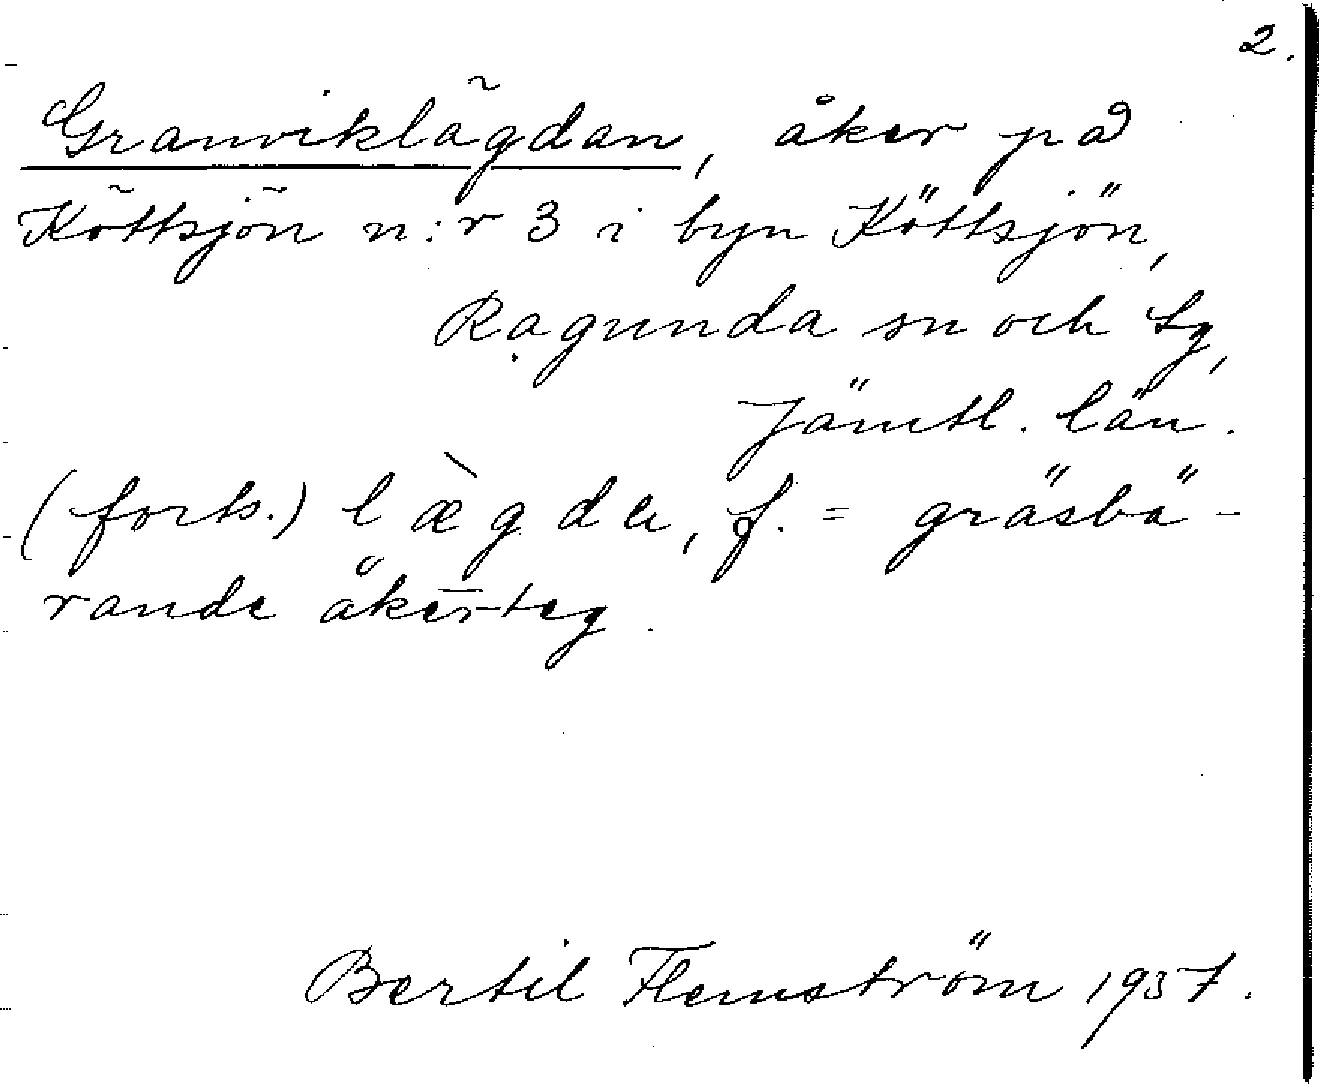 2.
Granviklägdan, åker på
Köttsjön n:r 3 i byn Köttsjön,
Ragunda sn och tg,
Jämtl. län.
(forts.) læ̀gda, f. = gräsbä-
rande åkerteg.
Bertil Flemström 1937.